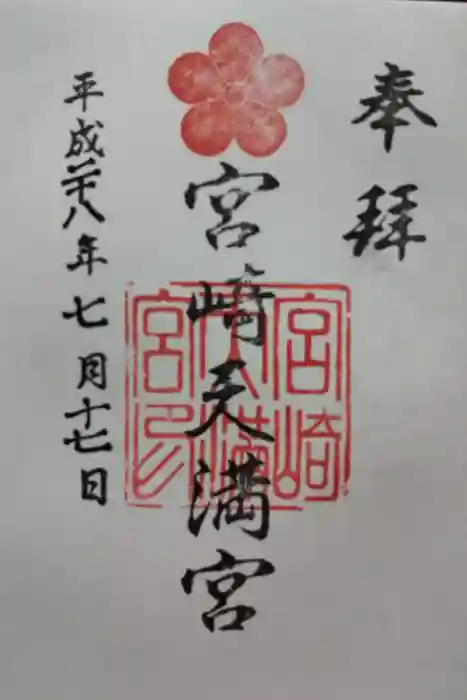 奉拝
宮崎天満宮
宮崎
天満
宮印
平成二十八年七月十七日